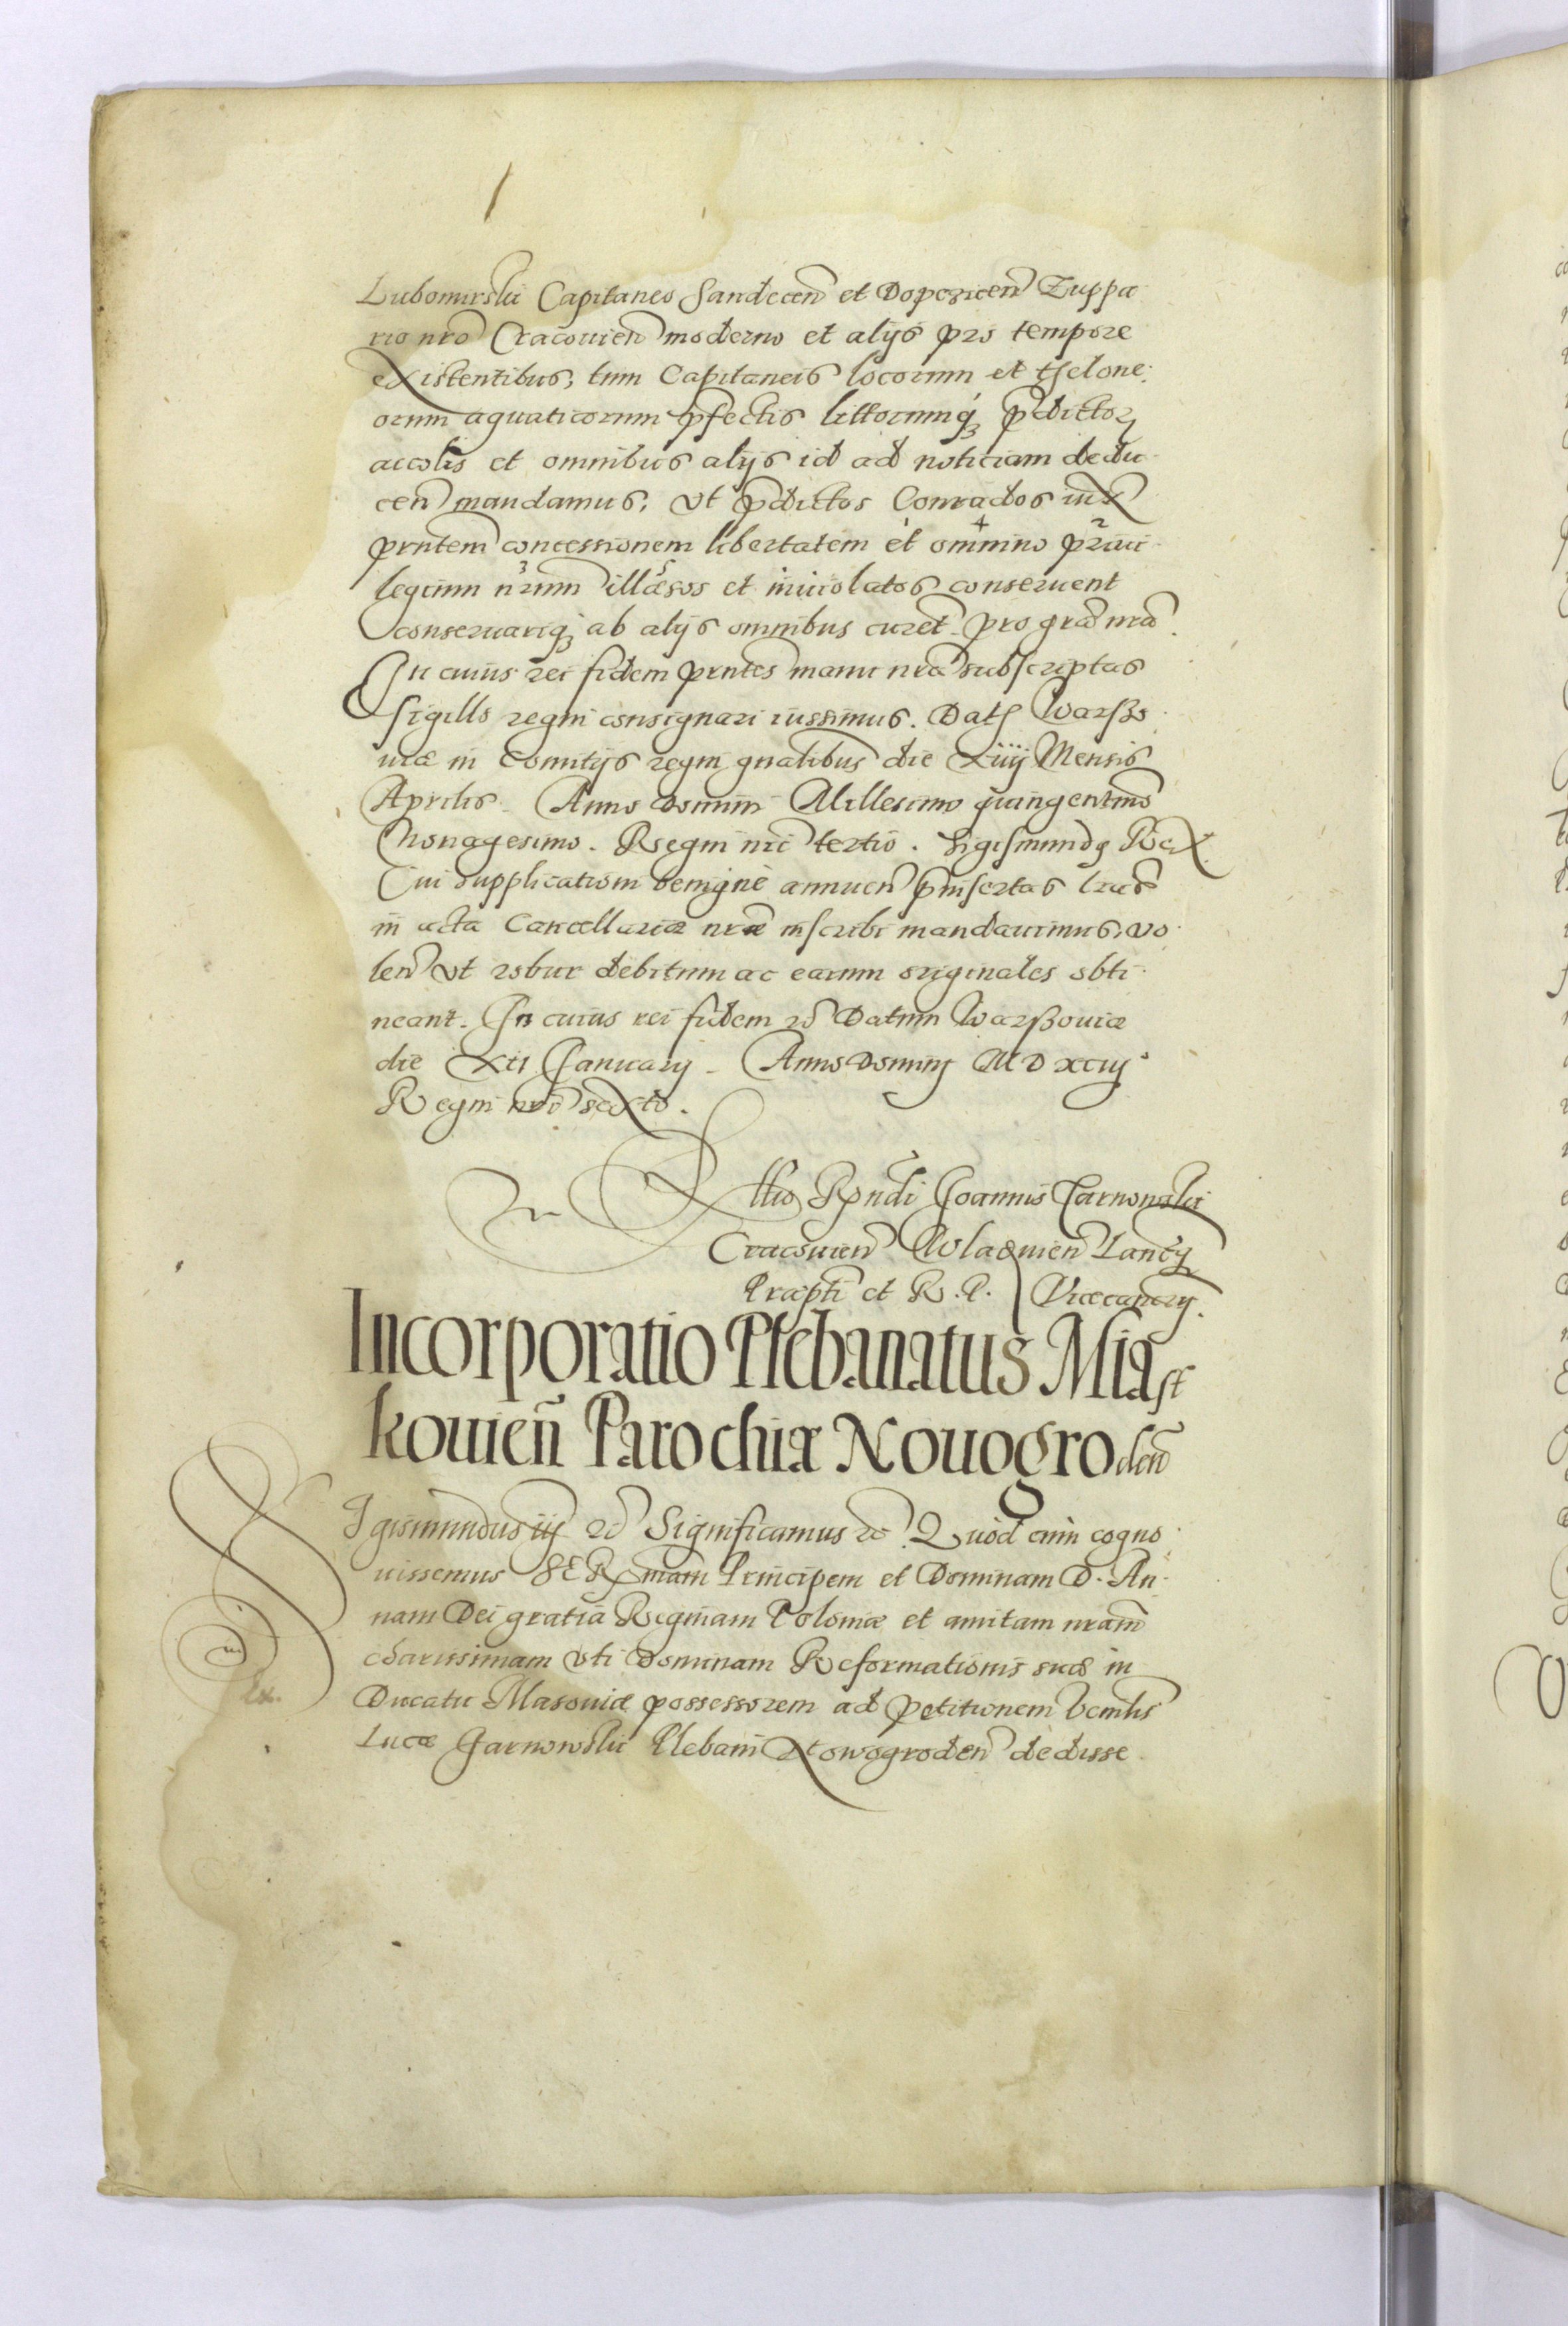 Lubomirski Capitaneo Sandecen̄ et Dopczicen̄ Zuppa
rio nr̄o Cracouien̄ moderno et alijs pro tempore
existentibus, tum Capitaneis locorum et thelone:
orum aquaticorum pfectis littorumq́ȝ p̄dictoꝝ
accolis et omnibus alijs id ad noticiam dedu
cen̄ mandamus, vt p̄dictos Conrados iux
prn̄tem concessionem libertatem et omnino priui
legium nr̄um illæsos et inuiolatos conseruent
conseruariq́ȝ ab alijs omnibus curet pro gr̄a nr̄a
In cuius rei fidem prn̄tes manu nr̄a subscriptas
sigillo regni consignari iussimus. Dat Warsso
uiæ in Comitijs regni gn̄alibus die Xiiij Mensis
Aprilis Anno Domini Millesimo quingentmō
Nonagesimo. Regni nr̄i tertio. Sigismundꝯ Rex
Cui supplicationi benignè annuen̄ p̄insertas lr̄as
in acta Cancellariæ nr̄æ inscribi mandauimus, vo
len̄ vt robur debitum ac earum originales obti
neant. In cuius rei fidem ꝛc̄ Datum Warssouiæ
die Xii January Anno Dominj MDXCiij
Regni nr̄i sexto.
Rl̄tio Rn̄di Joannis Tarnowski
Cracouien̄ Wladiuien̄ Lancȳ
Præpti et R. P. Vicecancrij.
Incorporatio Plebanatus Miast
kouien̄ Parochiæ Nouogroden̄
Sigismundus iij ꝛc̄ Significamus ꝛc̄. Quod cum cogno
uissemus SERmam Principem et Dominam D. An
nam Dei gratia Reginam Poloniæ et amitam nr̄am
charissimam vti Dominam Reformationis suæ in
Ducatu Masouiæ possessorem ad petitionem Venlis
Lucæ Jarnowski Plebani Nowogroden̄ dedisse